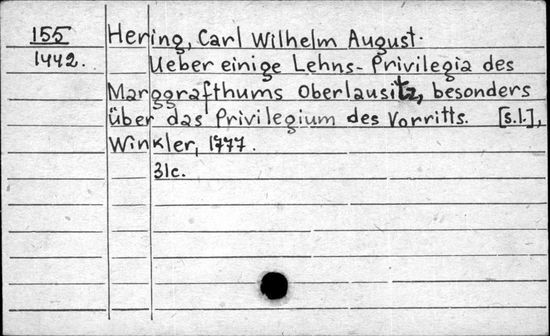 155 Hering, Carl Wilhelm August.
1442. Ueber einige Lehns-Privilegia des
Marggrafthums Oberlausitz, besonders
über das Privilegium des Vorritts. [s.l.],
Winkler, 1777.
31c.